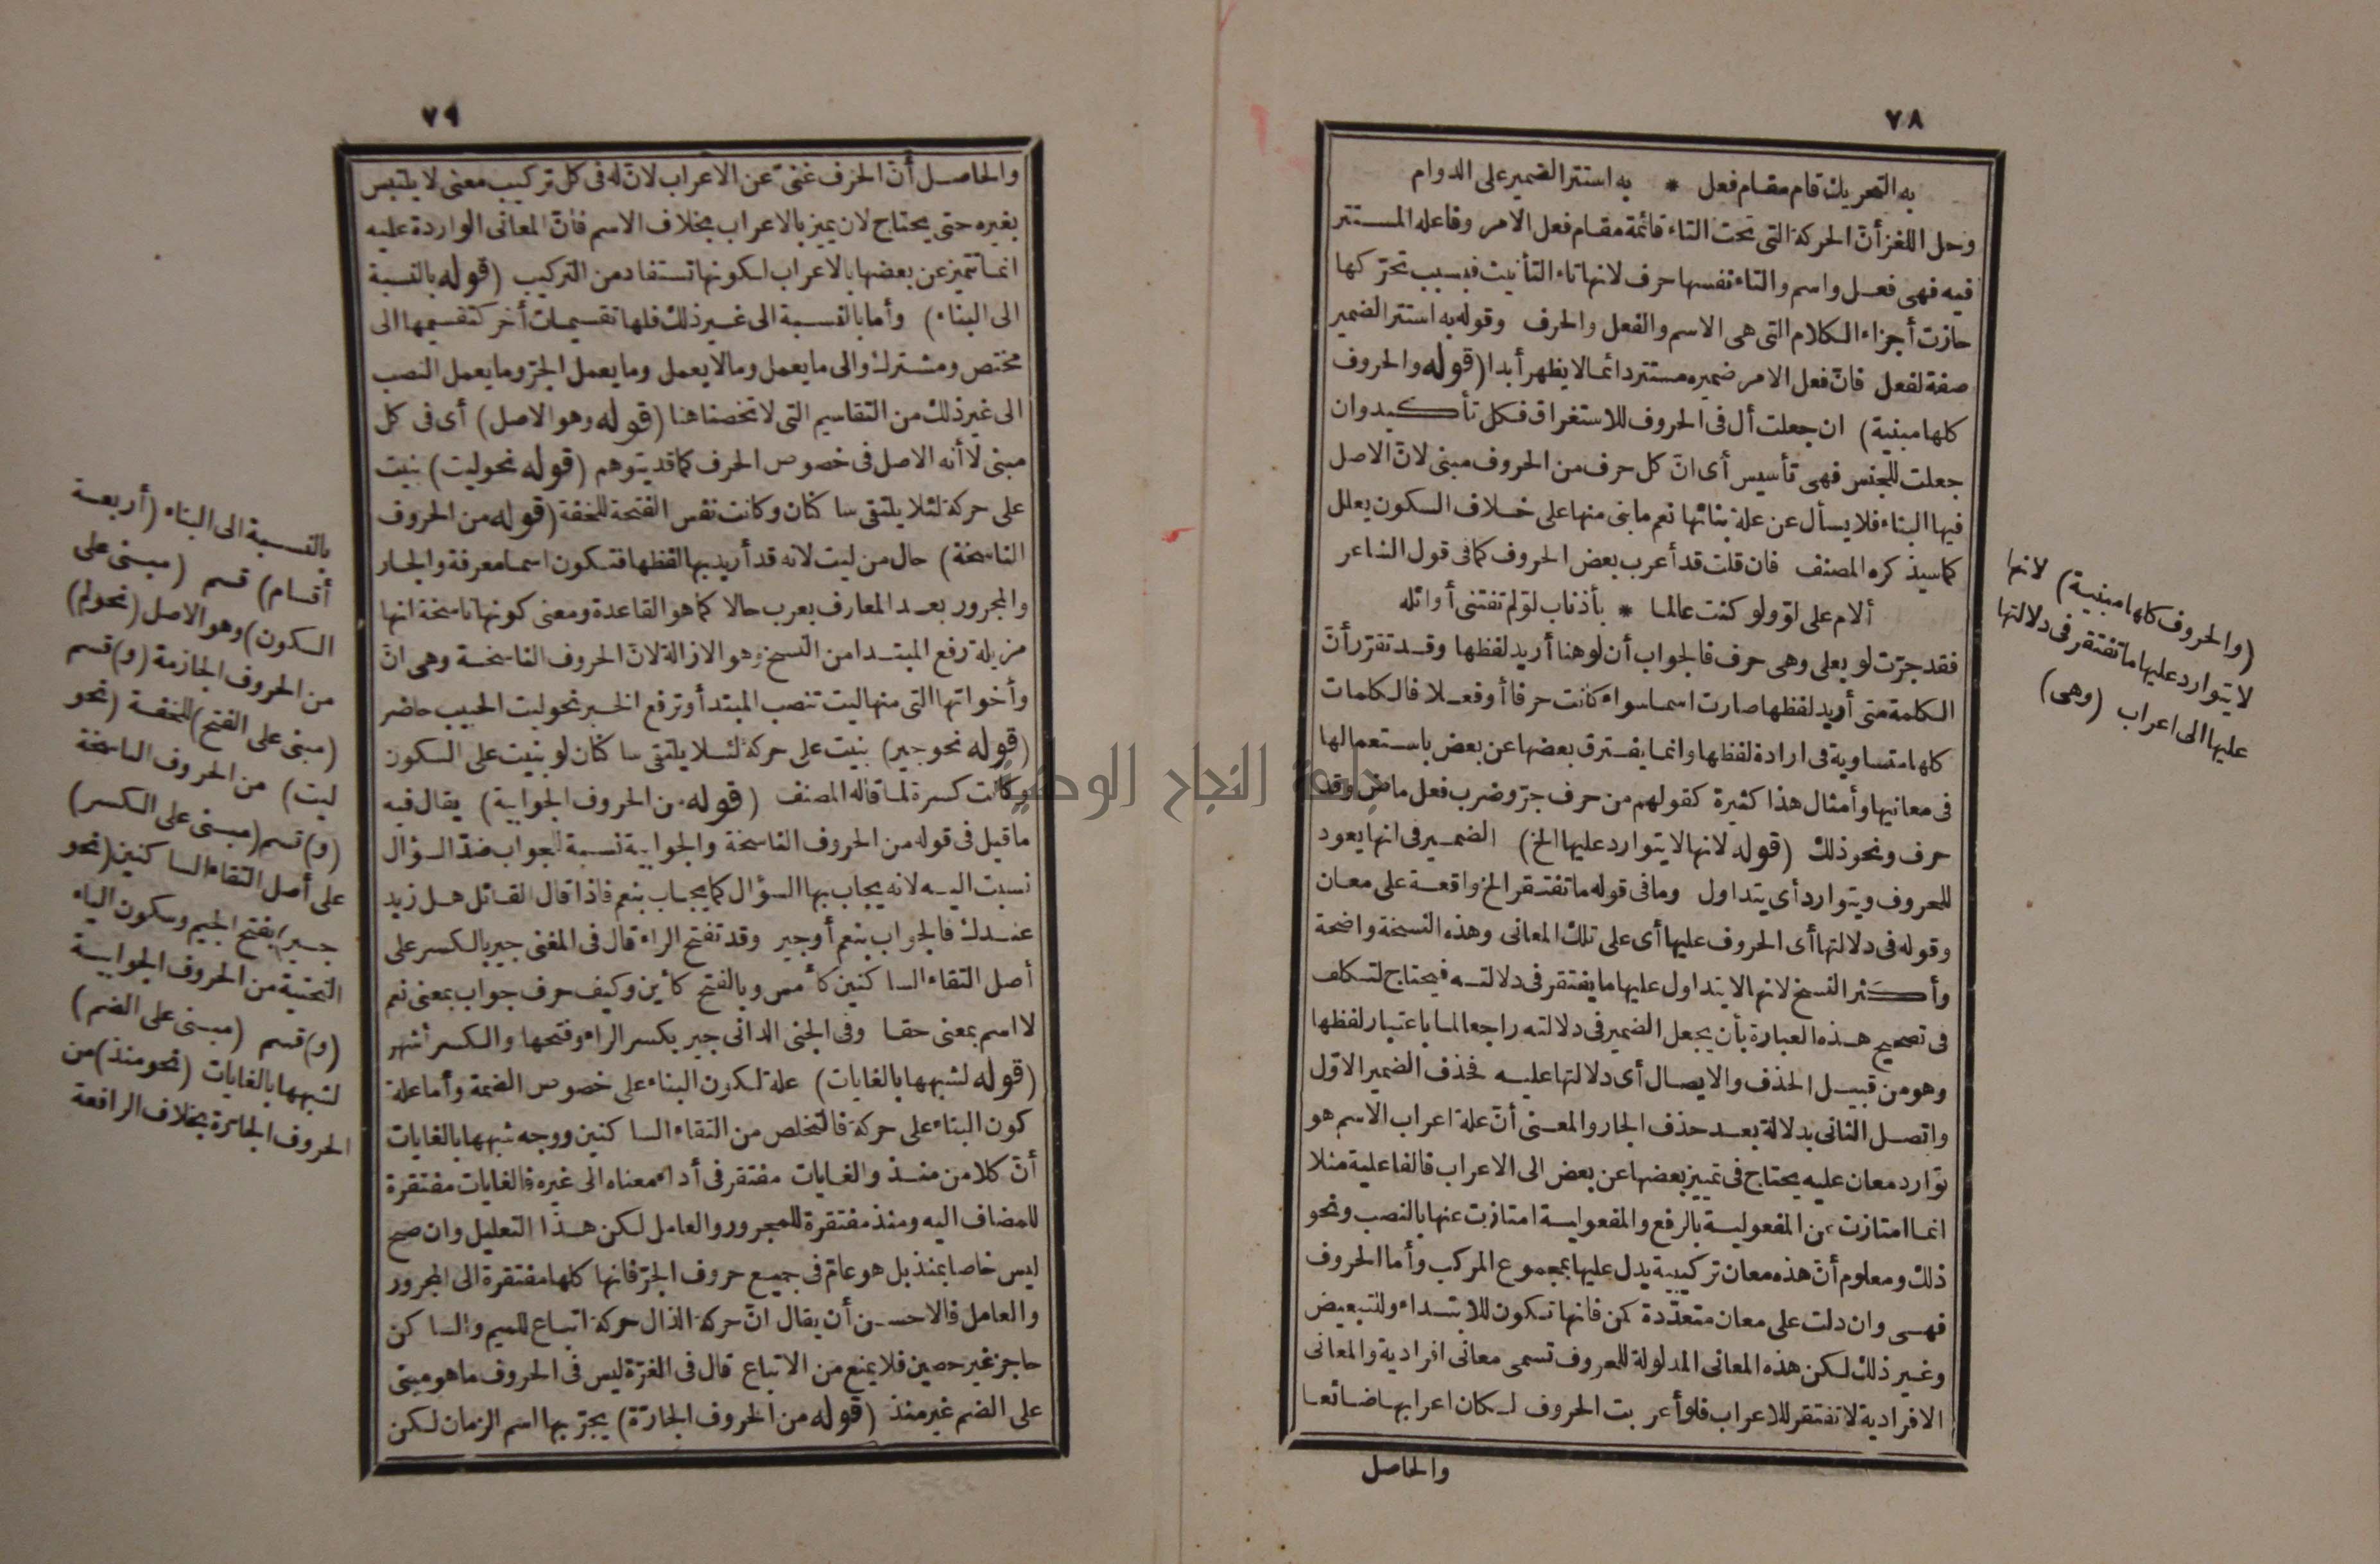 ٧٨
به التحريك قام مقام فعل * به استتر الضمير على الدوام
وحل اللغز أنّ الحركة التى تحت التاء قائمة مقام فعل الامر وفاعله المستتر
فيه فهى فعل واسم والتاء نفسها حرف لانها تاء التأنيث فبسبب تحرّكها
حازت أجزاء الكلام التى هى الاسم والفعل والحرف وقوله به استتر الضمير
صفة لفعل فانّ فعل الامر ضميره مستتر دائما لا يظهر أبدا (قوله والحروف
كلها مبنية) ان جعلت أل فى الحروف للاستغراق فكل تأكيد وان
جعلت للجنس فهى تأسيس أى انّ كل حرف من الحروف مبنى لانّ الاصل
فيها البناء فلا يسأل عن علة بنائها نعم ما بنى منها على خلاف السكون يعلل
كما سيذكره المصنف فان قلت قد أعرب بعض الحروف كما فى قول الشاعر
ألام على لوّ ولو كنت عالما * بأذناب لوّ لم تفتنى أوائله
فقد جرّت لو بعلى وهى حرف فالجواب أن لو هنا أريد لفظها وقد تقرّر أنّ
الكلمة متى أريد لفظها صارت اسما سواء كانت حرفا أو فعلا فالكلمات
كلها متساوية فى ارادة لفظها وانما يفترق بعضها عن بعض باستعمالها
فى معانيها وأمثال هذا كثيرة كقولهم من حرف جرّ وضرب فعل ماض وقد
حرف ونحو ذلك (قوله لانها لا يتوارد عليها الخ) الضمير فى انها يعود
للحروف ويتوارد أى يتداول وما فى قوله ما تفتقر الخ واقعة على معان
وقوله فى دلالتها أى الحروف عليها أى على تلك المعانى وهذه النسخة واضحة
وأكثر النسخ لانها لا يتداول عليها ما يفتقر فى دلالته فيحتاج لتكلف
فى تصحيح هذه العبارة بأن يجعل الضمير فى دلالته راجعا لما باعتبار لفظها
وهو من قبيل الحذف والايصال أى دلالتها عليه فحذف الضمير الاوّل
واتصل الثانى بدلالة بعد حذف الجار والمعنى أنّ علة اعراب الاسم هو
توارد معان عليه يحتاج فى تمييز بعضها عن بعض الى الاعراب فالفاعلية مثلا
انما امتازت عن المفعولية بالرفع والمفعولية امتازت عنها بالنصب ونحو
ذلك ومعلوم أنّ هذه معان تركيبية يدل عليها بمجموع المركب وأما الحروف
فهى وان دلت على معان متعدّدة كمن فانها تكون للابتداء وللتبعيض
وغير ذلك لكن هذه المعانى المدلولة للحروف تسمى معانى افرادية والمعانى
الافرادية لا تفتقر للاعراب فلو أعربت الحروف لكان اعرابها ضائعا
والحاصل
(والحروف كلها مبنية) لانها
لا يتوارد عليها ما تفتقر فى دلالتها
عليها الى اعراب (وهى)
٧٩
والحاصل أنّ الحرف غنىّ عن الاعراب لانّ له فى كل تركيب معنى لا يلتبس
بغيره حتى يحتاج لان يميز بالاعراب بخلاف الاسم فانّ المعانى الواردة عليه
انما تتميز عن بعضها بالاعراب لكونها تستفاد من التركيب (قوله بالنسبة
الى البناء) وأما بالنسبة الى غير ذلك فلها تقسيمات أخر كتقسيمها الى
مختص ومشترك والى ما يعمل وما لا يعمل وما يعمل الجرّ وما يعمل النصب
الى غير ذلك من التقاسيم التى لا تخصنا هنا (قوله وهو الاصل) أى فى كل
مبنى لا أنه الاصل فى خصوص الحرف كما قد يتوهم (قوله نحو ليت) بنيت
على حركة لئلا يلتقى ساكنان وكانت نفس الفتحة للخفة (قوله من الحروف
الناسخة) حال من ليت لانه قد أريد بها لفظها فتكون اسما معرفة والجار
والمجرور بعد المعارف يعرب حالا كما هو القاعدة ومعنى كونها ناسخة انها
مزيلة رفع المبتدا من النسخ وهو الازالة لانّ الحروف الناسخة وهى انّ
وأخواتها التى منها ليت تنصب المبتدأ وترفع الخبر نحو ليت الحبيب حاضر
(قوله نحو جير) بنيت على حركة لئلا يلتقى ساكنان لو بنيت على السكون
وكانت كسرة لما قاله المصنف (قوله من الحروف الجوابية) يقال فيه
ما قيل فى قوله من الحروف الناسخة والجوابية نسبة لجواب ضدّ السؤال
نسبت اليه لانه يجاب بها السؤال كما يجاب بنعم فاذا قال القائل هل زيد
عندك فالجواب بنعم أو جير وقد تفتح الراء قال فى المغنى جير بالكسر على
أصل التقاء الساكنين كأمس وبالفتح كأين وكيف حرف جواب بمعنى نعم
لا اسم بمعنى حقا وفى الجنى الدانى جير بكسر الراء وفتحها والكسر أشهر
(قوله لشبهها بالغايات) علة لكون البناء على خصوص الضمة وأما علة
كون البناء على حركة فالتخلص من التقاء الساكنين ووجه شبهها بالغايات
أنّ كلا من منذ والغايات مفتقر فى أداء معناه الى غيره فالغايات مفتقرة
للمضاف اليه ومنذ مفتقرة للمجرور والعامل لكن هذا التعليل وان صح
ليس خاصا بمنذ بل هو عامّ فى جميع حروف الجرّ فانها كلها مفتقرة الى المجرور
والعامل فالاحسن أن يقال انّ حركة الذال حركة اتباع للميم والساكن
حاجز غير حصين فلا يمنع من الاتباع قال فى الغرّة ليس فى الحروف ما هو مبنى
على الضم غير منذ (قوله من الحروف الجارّة) يجرّ بها اسم الزمان لكن
بالنسبة الى البناء (أربعة
أقسام) قسم (مبنى على
السكون) وهو الاصل (نحو لم)
من الحروف الجازمة (و) قسم
(مبنى على الفتح) للخفة (نحو
ليت) من الحروف الناسخة
(و) قسم (مبنى على الكسر)
على أصل التقاء الساكنين (نحو
جير) بفتح الجيم وسكون الياء
التحتية من الحروف الجوابية
(و) قسم (مبنى على الضم)
لشبهها بالغايات (نحو منذ) من
الحروف الجارة بخلاف الرافعة
جامعة النجاح الوطنية